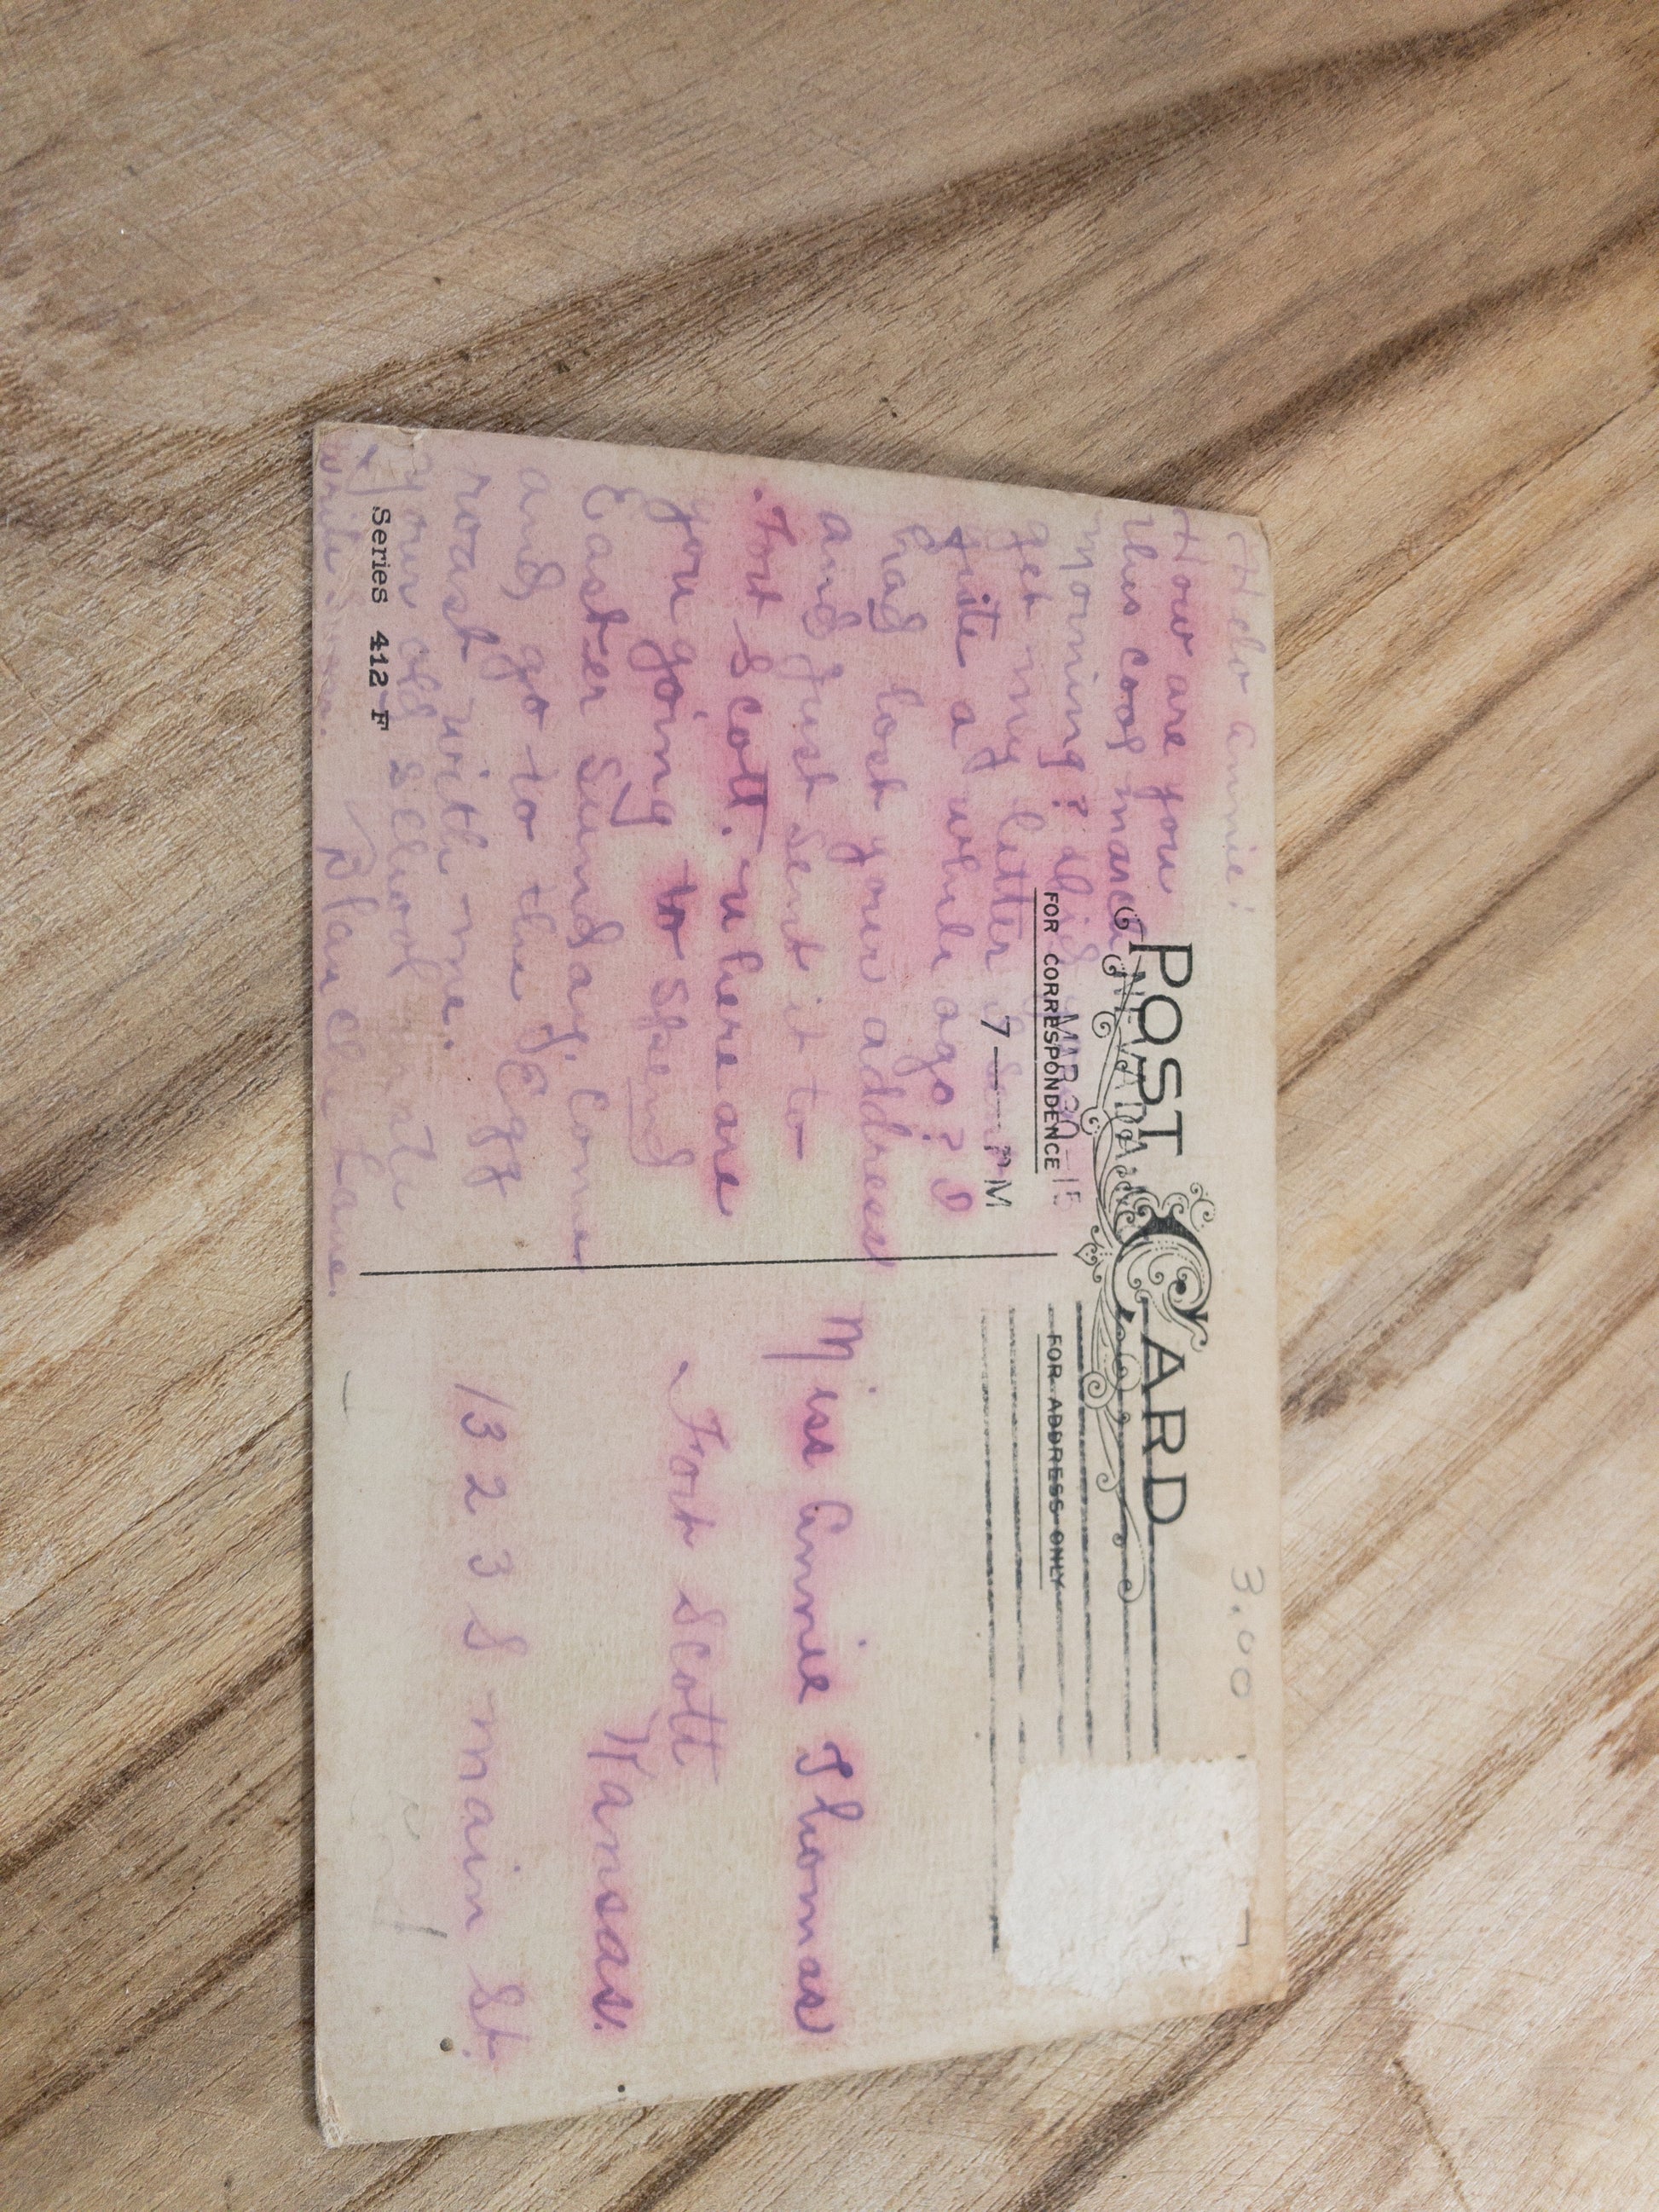 3.00
POST CARD
NEVADA
MAR 30
7 — PM
FOR CORRESPONDENCE
FOR ADDRESS ONLY
Helo Annie!
How are you
this cool march
morning? did you
get my letter I sent
quite a while ago? I
had lost your address
and just sent it to
Fort Scott. where are
you going to spend
Easter Sunday. Come
and go to the Egg
roast with me.
your old school mate
Blanche Lane.
Write soon.
Series 412 F
Miss Annie Thomas
Fort Scott
Kansas.
1323 S main St.